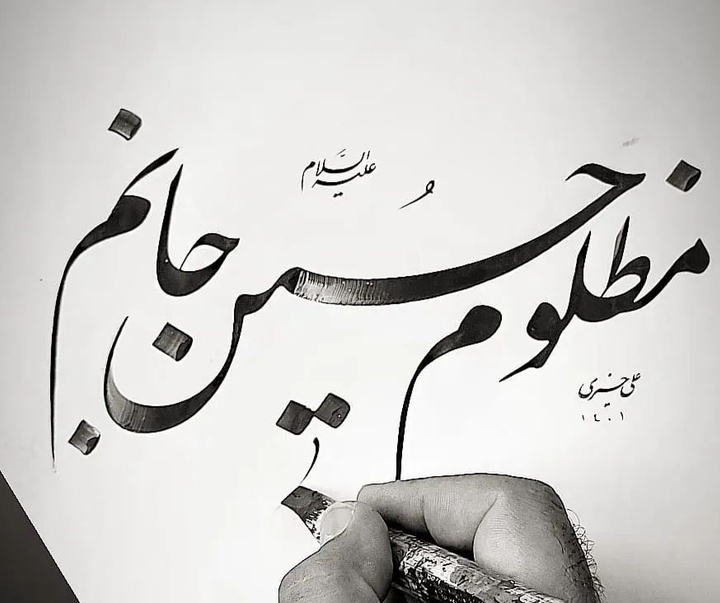 مظلوم حسین جانم
علیه السلام
علی خیری
۱۴۰۱